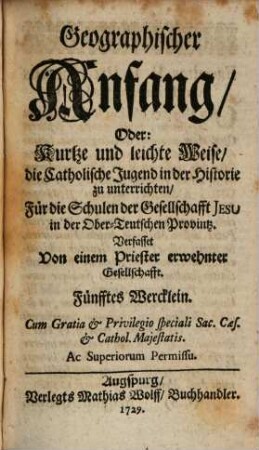 Geographischer
Anfang/
Oder:
Kurtze und leichte Weise/
die Catholische Jugend in der Historie
zu unterrichten/
Für die Schulen der Gesellschafft JESU
in der Ober-Teutschen Provintz.
Verfasset
Von einem Priester erwehnter
Gesellschafft.
Fünfftes Wercklein.
Cum Gratia & Privilegio speciali Sac. Cæs.
& Cathol. Majestatis.
Ac Superiorum Permissu.
Augspurg/
Verlegts Mathias Wolff/ Buchhandler.
1729.